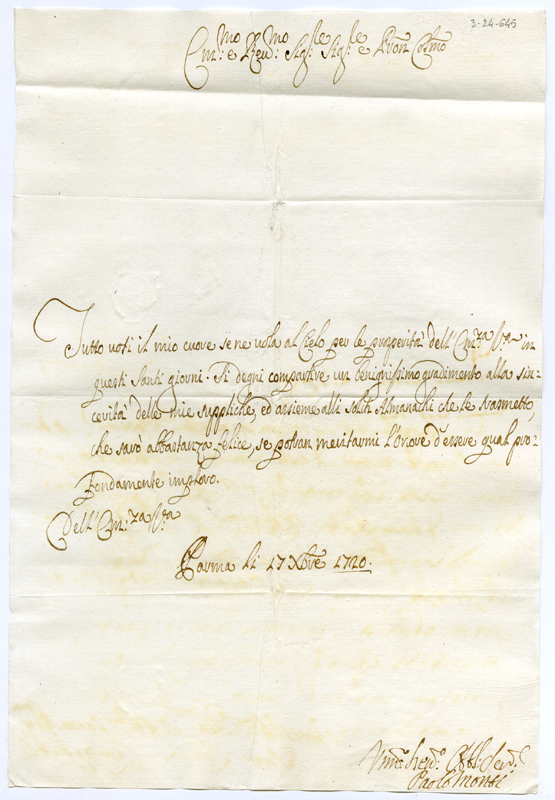 3-24-645
Em.mo e Rev.mo Sig.le Sig.le e Pron Cohmo
Tutto voti il mio cuore se ne vola al Cielo per le prosperità dell'Em.za V.ra in
questi Santi giorni. Si degni compartire un benignissimo gradimento alla sin-
cerità delle mie suppliche, ed assieme alli soliti Almanachi che le trametto,
che sarò abbastanza felice, se potran meritarmi l'onore d'essere qual pro-
fondamente imploro.
Dell'Em.za V.ra
Parma li 17 Xbre 1720.
Paolo Monti